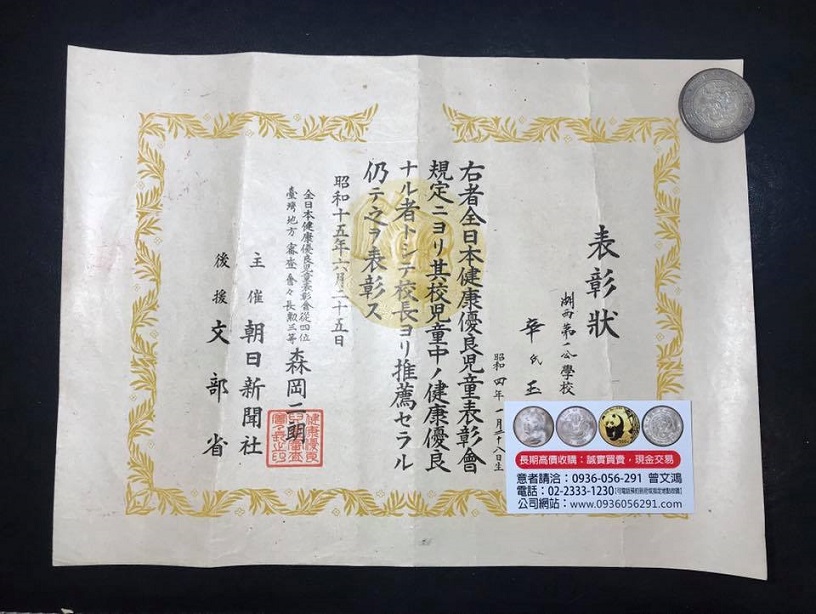 表彰状
湖西第一公學校
辛氏玉
昭和四年一月二十八日生
右者全日本健康優良児童表彰會
規定ニヨリ其校児童中ノ健康優良
ナル者トシテ校長ヨリ推薦セラル
仍テ之ヲ表彰ス
昭和十五年六月二十五日
全日本健康優良児童表彰會從四位
臺灣地方審査會々長勲三等
森岡二朗
主催 朝日新聞社
後援 文部省
長期高價收購：誠實買賣，現金交易
意者請洽：0936-056-291 曾文鴻
電話：02-2333-1230
公司網站：www.0936056291.com